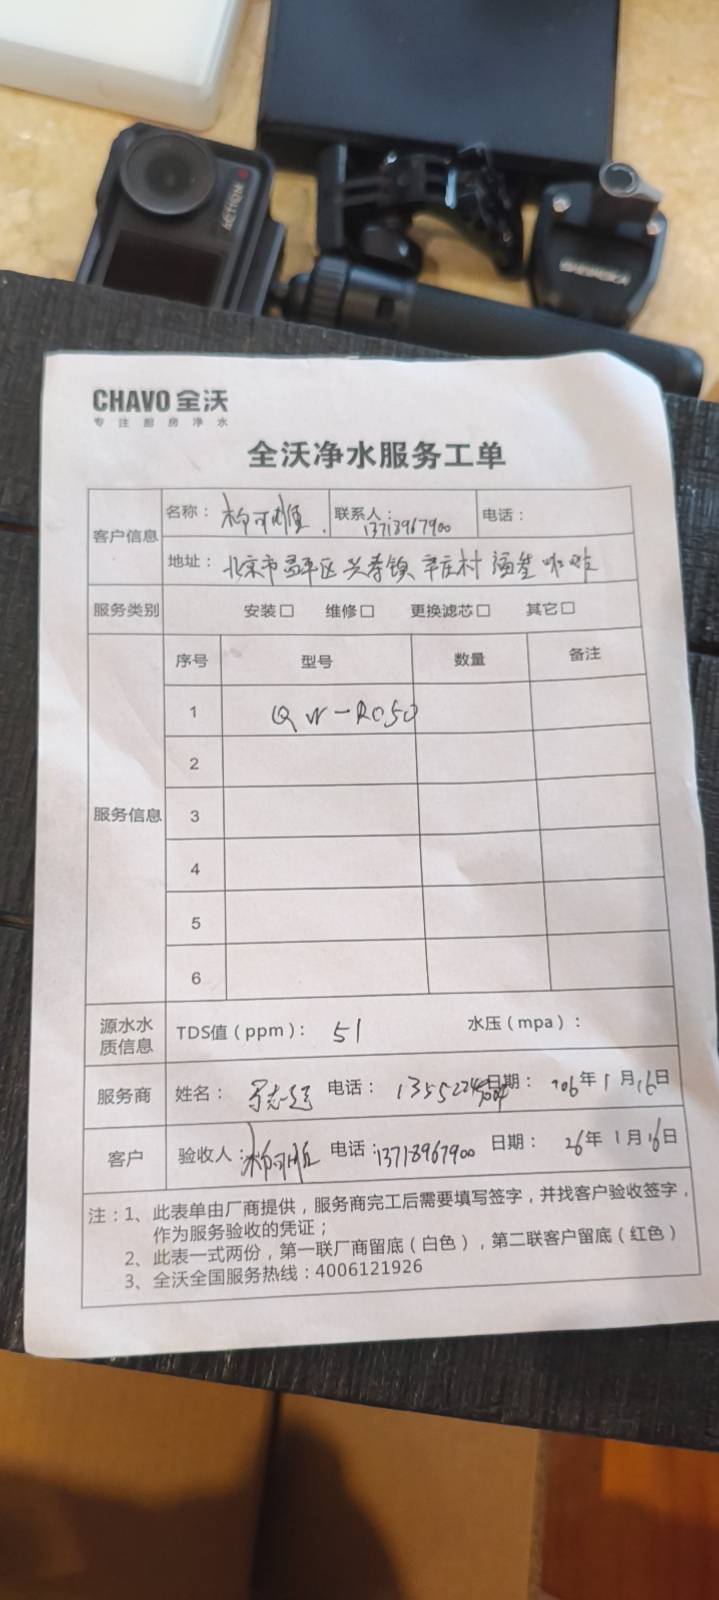 ACTION
CHAVO 全沃
专注厨房净水
全沃净水服务工单
客户信息 名称： 联系人：13718967900 电话：
地址：北京市昌平区兴寿镇辛庄村 咖啡
服务类别 安装□ 维修□ 更换滤芯□ 其它□
服务信息
序号 型号 数量 备注
1 QW-RO50
2
3
4
5
6
源水水质信息 TDS值（ppm）：51 水压（mpa）：
服务商 姓名： 电话： 日期： 年1月16日
客户 验收人： 电话：13718967900 日期：26年1月16日
注：1、此表单由厂商提供，服务商完工后需要填写签字，并找客户验收签字，
作为服务验收的凭证；
2、此表一式两份，第一联厂商留底（白色），第二联客户留底（红色）
3、全沃全国服务热线：4006121926